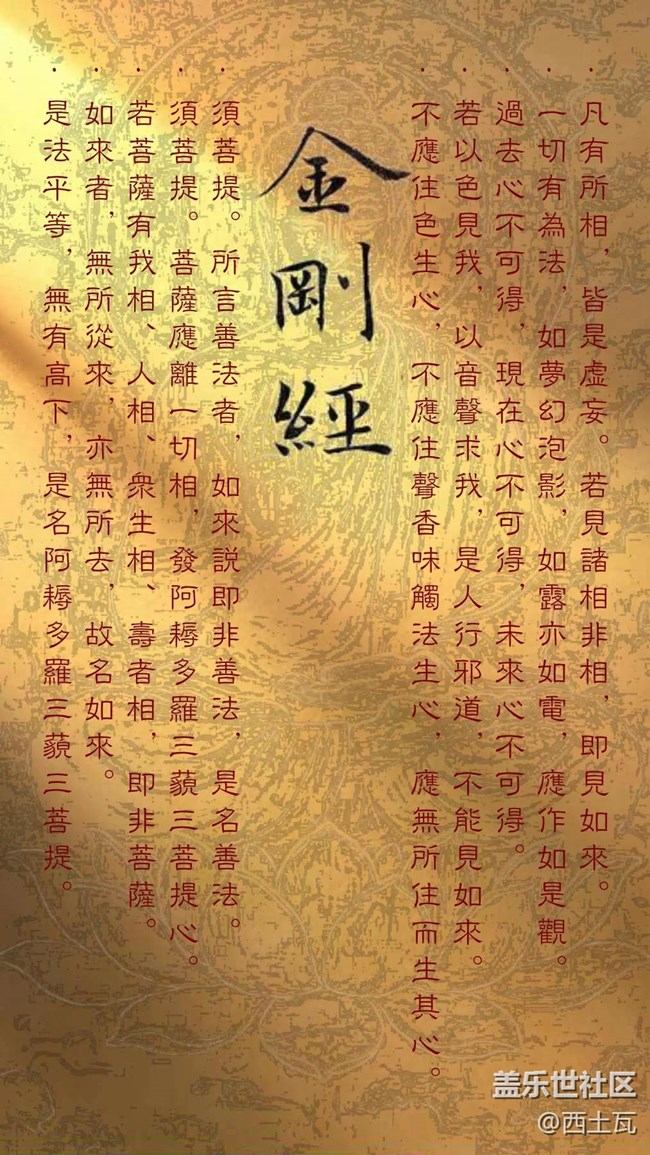 凡有所相，皆是虛妄。若見諸相非相，即見如來。
一切有為法，如夢幻泡影，如露亦如電，應作如是觀。
過去心不可得，現在心不可得，未來心不可得。
若以色見我，以音聲求我，是人行邪道，不能見如來。
不應住色生心，不應住聲香味觸法生心，應無所住而生其心。
金剛經
須菩提。所言善法者，如來説即非善法，是名善法。
須菩提。菩薩應離一切相，發阿耨多羅三藐三菩提心。
若菩薩有我相、人相、衆生相、壽者相，即非菩薩。
如來者，無所從來，亦無所去，故名如來。
是法平等，無有高下，是名阿耨多羅三藐三菩提。
盖乐世社区
@西土瓦